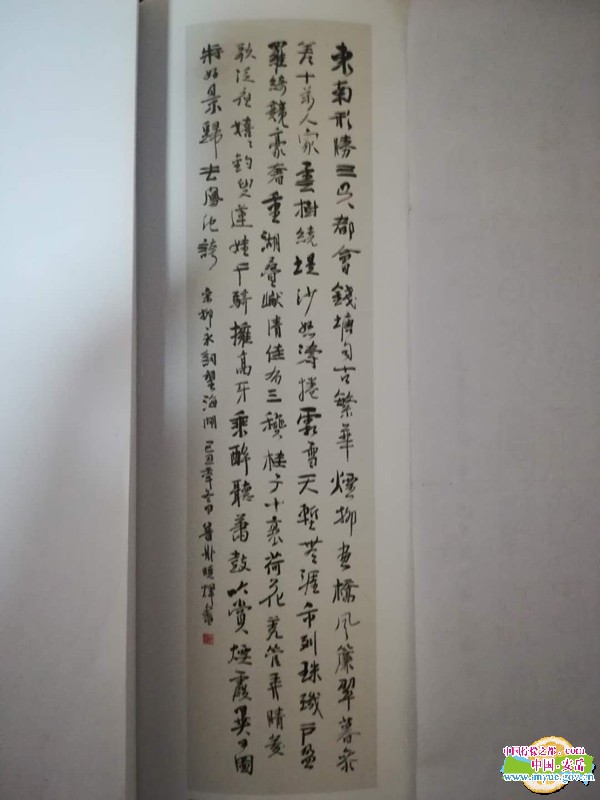 東南形勝三吳都會錢塘自古繁華煙柳畫橋風簾翠幕參
差十萬人家雲樹繞堤沙怒濤捲霜雪天塹無涯市列珠璣戶盈
羅綺競豪奢重湖疊巘清佳有三穐桂子十里荷花羌管弄晴菱
歌泛夜嬉〻釣叟蓮娃千騎擁高牙乘醉聽蕭鼓吟賞煙霞異日圖
將好景歸去鳳池誇 宋柳永詞望海潮 己丑年
中国柠檬之都.com
中国·安岳
www.anyue.gov.cn